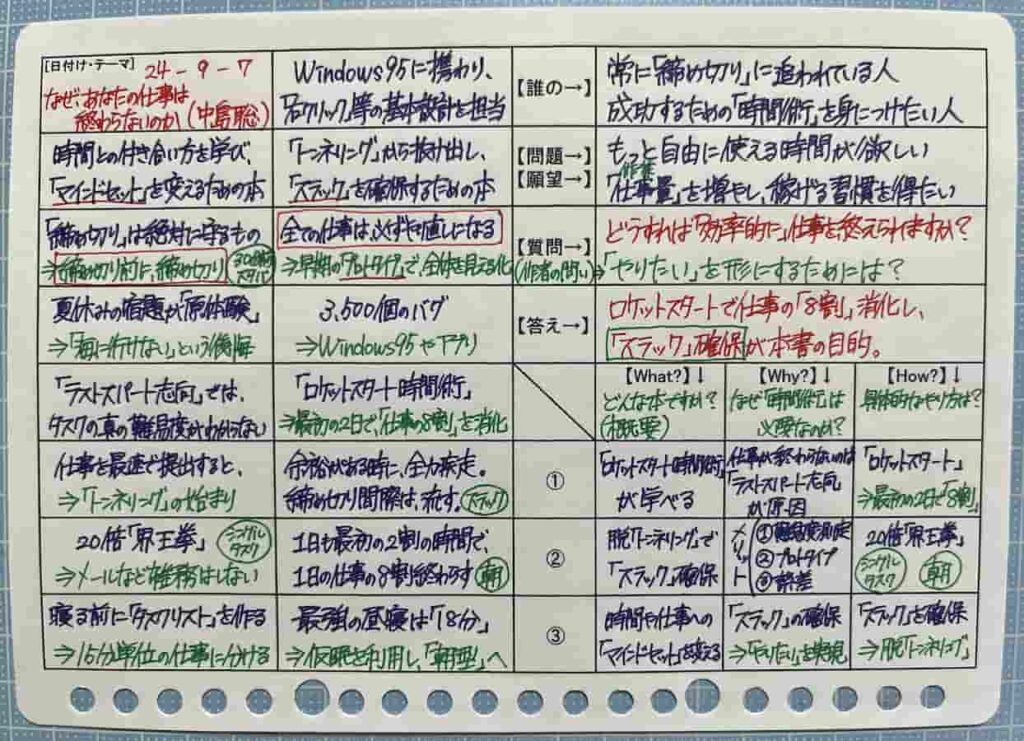 [日付け・テーマ] 24-9-7
なぜ、あなたの仕事は
終わらないのか(中島聡)
Windows95に携わり、
「右クリック」等の基本設計を担当
【誰の→】
常に「締め切り」に追われている人
成功するための「時間術」を身につけたい人
時間との付き合い方を学び、
「マインドセット」を変えるための本
「トンネリング」から抜け出し、
「スラック」を確保するための本
【問題→】
【願望→】
もっと自由に使える時間が欲しい
作業
「仕事量」を増やし、稼げる習慣を得たい
「締め切り」は絶対に守るもの
⇒締め切り前に、締め切り
全ての仕事は必ずやり直しになる
⇒早期の「プロトタイプ」で、全体を見える化
【質問→】
(作者の問い)
どうすれば「効率的に」仕事を終えられますか?
⇒「やりたい」を形にするためには?
夏休みの宿題が「原体験」
⇒「海に行けない」という後悔
3,500個のバグ
⇒Windows95やアプリ
【答え→】
ロケットスタートで仕事の「8割」消化し、
「スラック」確保が本書の目的。
「ラストスパート志向」では、
タスクの真の難易度がわからない
「ロケットスタート時間術」
⇒最初の2日で、「仕事の8割」を消化
【What?】↓
どんな本ですか?
(概要)
【Why?】↓
なぜ「時間術」は
必要なのか?
【How?】↓
具体的なやり方は?
仕事を最速で提出すると、
⇒「トンネリング」の始まり
余裕がある時に、全力疾走。
締め切り間際は、流す。スラック
①
「ロケットスタート時間術」
が学べる
仕事が終わらないのは
「ラストスパート志向」
が原因
「ロケットスタート」
⇒最初の2日で「8割」
20倍「界王拳」
シングル
タスク
⇒メールなど雑務はしない
1日も最初の2割の時間で、
1日の仕事の8割終わらす 朝
②
脱「トンネリング」で
「スラック」確保
メリット
①難易度測定
②プロトタイプ
③誤差
20倍「界王拳」
シングル
タスク
朝
寝る前に「タスクリスト」を作る
⇒15分単位の仕事に分ける
最強の昼寝は「18分」
⇒仮眠を利用し、「朝型」へ
③
時間や仕事への
「マインドセット」を変える
「スラック」の確保
⇒「やりたい」を実現
「スラック」を確保
⇒脱「トンネリング」